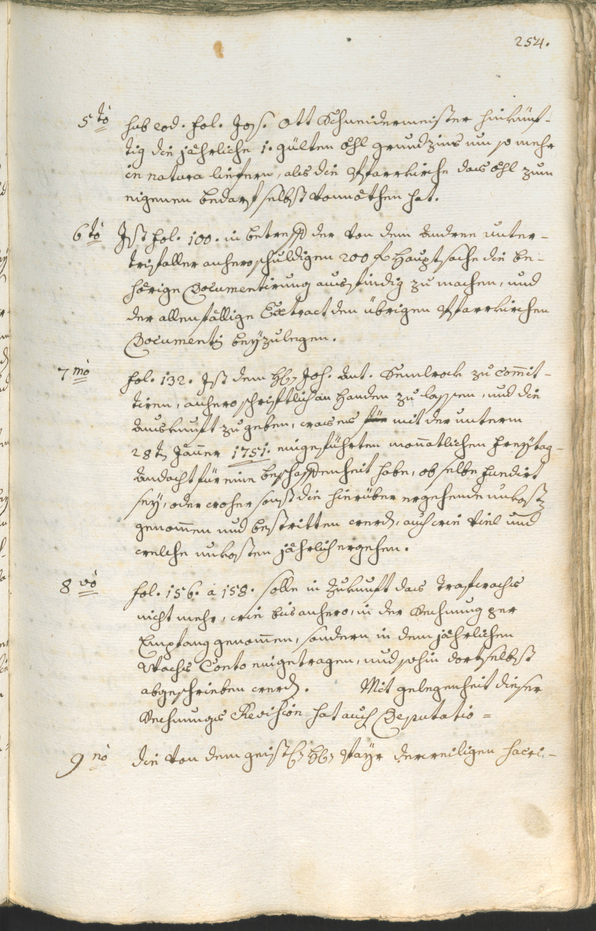 254.
5to hab eod. fol. Jos. Ott Schneidermeister hinkünf-
tig die jährliche 1. gülten Öhl grundzins um so mehr
in natura liefern, als die Pfarrkirche das Öhl zum
eigenen bedarf selbst vonnöthen hat.
6to Ist fol. 100. in betreff der von dem Andree Unter-
trifaller anhero schuldigen 200 f Hauptsache die Be-
hörige Documentirung ausfindig zu machen, und
der allenfällige Extract den übrigen Pfarrkirchen
Documentis beyzulegen.
7mo fol. 132. Ist dem Joh. Ant. zu Commit-
tiren, anhero schriftlich an Handen zu lassen, und die
Auskunft zu geben, was es mit der unterm
28t Jänner 1751. eingeführten monnatlichen freytag-
andacht für eine beschaffenheit habe, ob selbe fundirt
sey, oder woher sonst die hierüber ergehende unkosten
genommen und bestritten werd, auch wie viel und
welche unkosten jährlich ergehen.
8vo fol. 156. à 158. solle in Zukunft das Wachs
nicht mehr, wie bis anhero, in der Rechnung per
Empfang genommen, sondern in dem jährlichen
Wachs Conto eingetragen, und sohin dortselbst
abgeschrieben werd. Mit gelegenheit dieser
Rechnungs Revision hat auch Deputatio =
9no die von dem geistl. H. Mayr derweiligen Sacri-